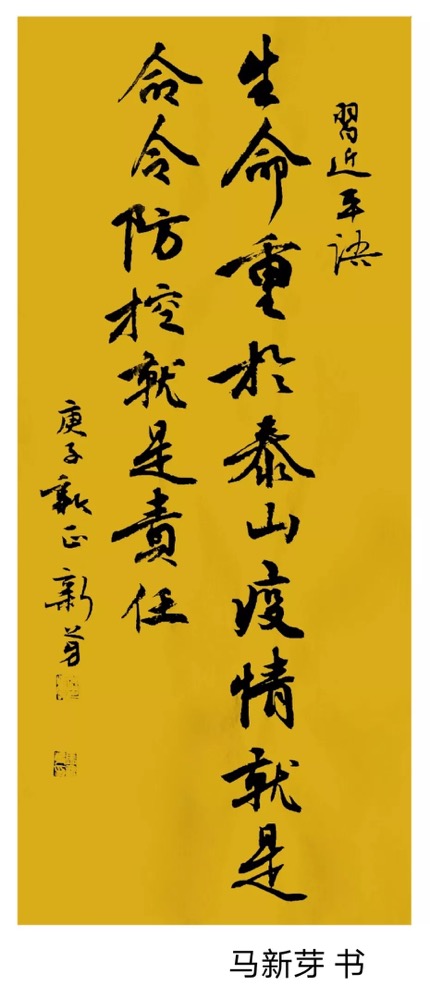 習近平語
生命重於泰山疫情就是
命令防控就是責任
庚子新正新芽
马新芽 书